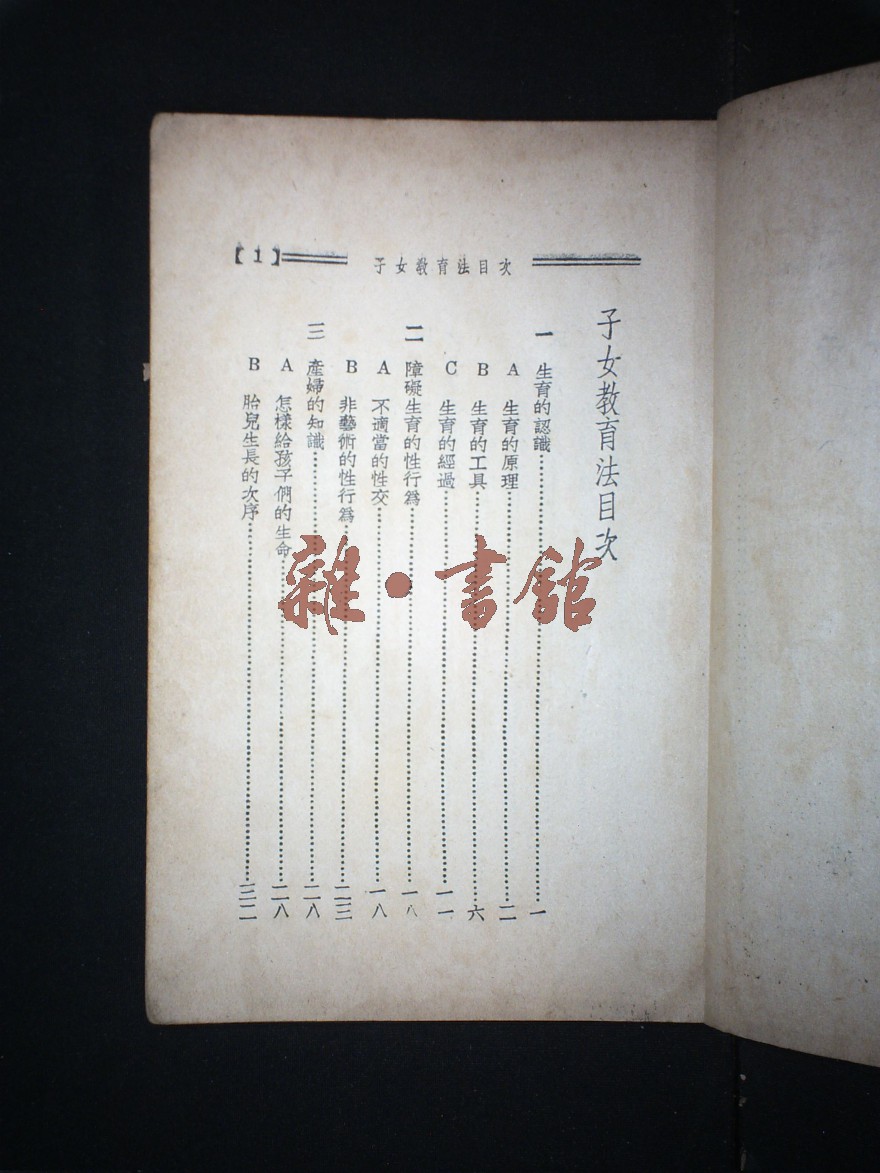 【1】
子女教育法目次
子女教育法目次
一 生育的認識……一
A 生育的原理……二
B 生育的工具……六
C 生育的經過……一一
二 障礙生育的性行爲……一八
A 不適當的性交……一八
B 非藝術的性行爲……二三
三 產婦的知識……二八
A 怎樣給孩子們的生命……二八
B 胎兒生長的次序……三二
雜·書館